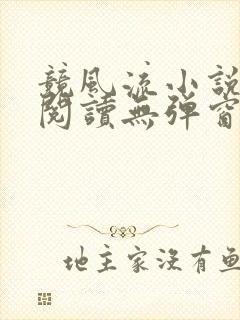 競風流小說
閱讀無彈窗
地主家沒有魚